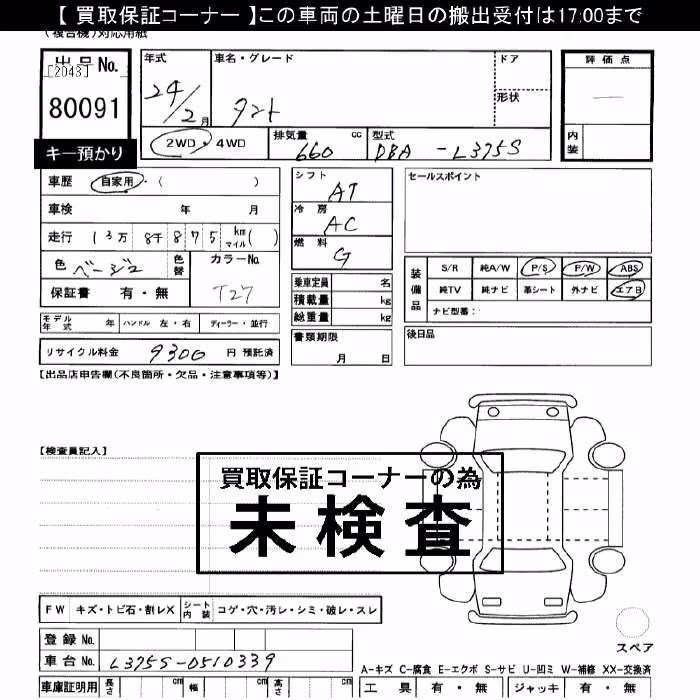 【 買取保証コーナー 】この車両の土曜日の搬出受付は17:00まで
(複合機)対応用紙
出品No.
[2043]
80091
キー預かり
年式
24/2月
車名・グレード
タント
ドア
形状
評価点
—
内装
2WD・4WD
排気量 cc
660
型式
DBA-L375S
車歴 自家用・( )
車検 年 月
走行 13万8千875 km マイル( )
色 ベージュ 色替
カラーNo.
T27
保証書 有・無
シフト
AT
冷房
AC
燃料
G
乗車定員 名
積載量 kg
総重量 kg
書類期限
月 日
セールスポイント
装備品
S/R 純A/W P/S P/W ABS
純TV 純ナビ 革シート 外ナビ エアB
ナビ型番：
後日品
モデル年式 年 ハンドル 左・右 ディーラー・並行
リサイクル料金 9300 円 預託済
【出品店申告欄(不良箇所・欠品・注意事項等)】
【検査員記入】
買取保証コーナーの為
未検査
FW キズ・トビ石・割レX シート内装 コゲ・穴・汚レ・シミ・破レ・スレ
登録No.
車台No. L375S-0510339
車庫証明用 長さ cm 幅 cm 高さ cm
スペア
A-キズ C-腐食 E-エクボ S-サビ U-凹ミ W-補修 XX-交換済
工具 有・無 ジャッキ 有・無